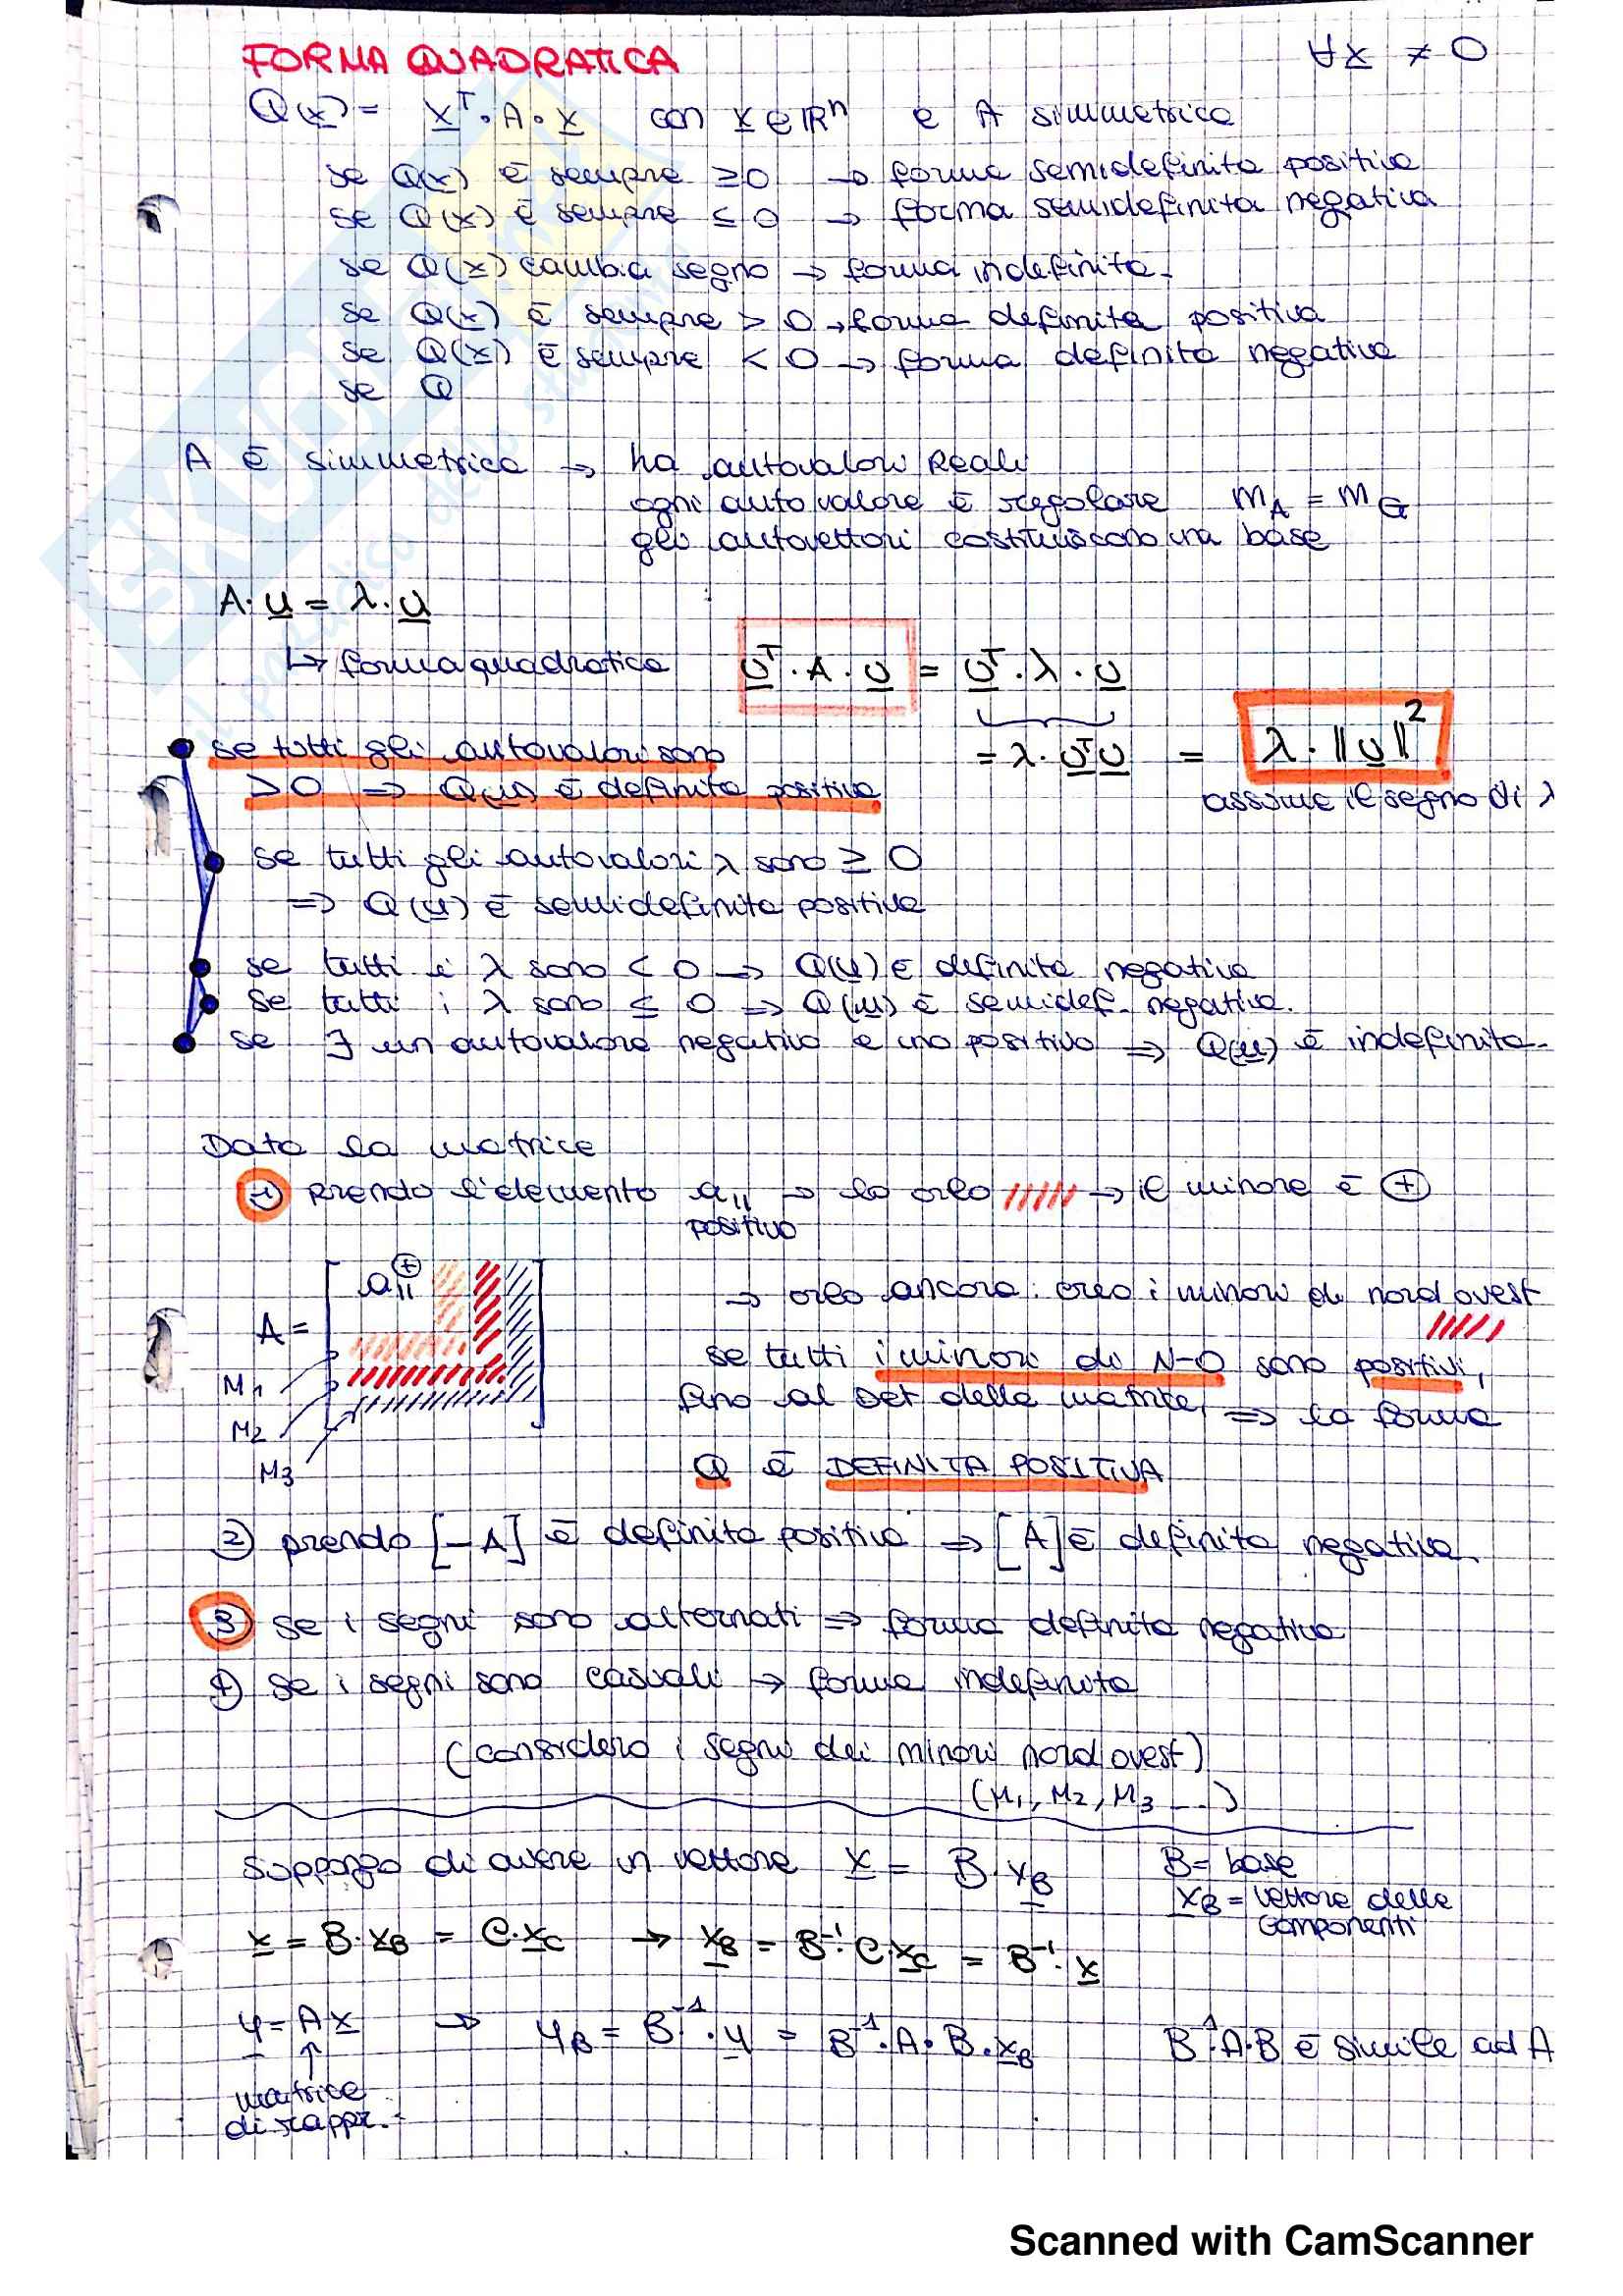 FORMA QUADRATICA ∀x ≠ 0
Q(x) = xᵀ·A·x con x ∈ ℝⁿ e A simmetrica
se Q(x) è sempre ≥0 → forma semidefinita positiva
se Q(x) è sempre ≤ 0 → forma semidefinita negativa
se Q(x) cambia segno → forma indefinita.
se Q(x) è sempre > 0 → forma definita positiva
se Q(x) è sempre < 0 → forma definita negativa
se Q
A è simmetrica → ha autovalori Reali
ogni autovalore è regolare m_A = m_G
gli autovettori costituiscono una base
A·u = λ·u
↳ forma quadratica uᵀ·A·u = uᵀ·λ·u
= λ·uᵀu = λ·‖u‖²
assume il segno di λ
se tutti gli autovalori sono
>0 ⇒ Q(u) è definita positiva
se tutti gli autovalori λ sono ≥ 0
⇒ Q(u) è semidefinita positiva
se tutti i λ sono < 0 ⇒ Q(u) è definita negativa
se tutti i λ sono ≤ 0 ⇒ Q(u) è semidef. negativa.
se ∃ un autovalore negativo e uno positivo ⇒ Q(u) è indefinita.
Data la matrice
1) prendo l'elemento a₁₁ → lo orlo → il minore è +
positivo
A = [ a₁₁ + ]
M1
M2
M3
→ orlo ancora: creo i minori di nord ovest
se tutti i minori di N-O sono positivi,
fino al det della matrice, ⇒ la forma
Q è DEFINITA POSITIVA
2) prendo [-A] è definita positiva ⇒ [A] è definita negativa.
3) se i segni sono alternati ⇒ forma definita negativa
4) se i segni sono casuali → forma indefinita
(considero i segni dei minori nord ovest)
(M1, M2, M3 ...)
Suppongo di avere un vettore x = B·x_B B = base
x_B = vettore delle
componenti
x = B·x_B = C·x_C → x_B = B⁻¹·C·x_C = B⁻¹·x
y = Ax → y_B = B⁻¹·y = B⁻¹·A·B·x_B B⁻¹·A·B è simile ad A
↑
matrice
di rappr.
SKUOLA.net
il paradiso dello studente
Scanned with CamScanner